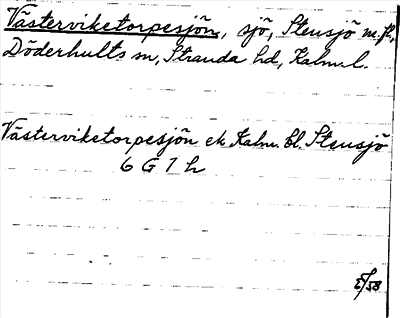 Västerviketorpesjön, sjö, Stensjö m.fl.,
Döderhults sn, Stranda hd, Kalm.l.
Västerviketorpesjön ek. Kalm. bl. Stensjö
6 G 1 h
/58